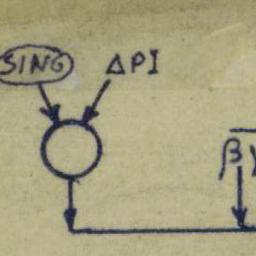 SING ΔPI
βγ